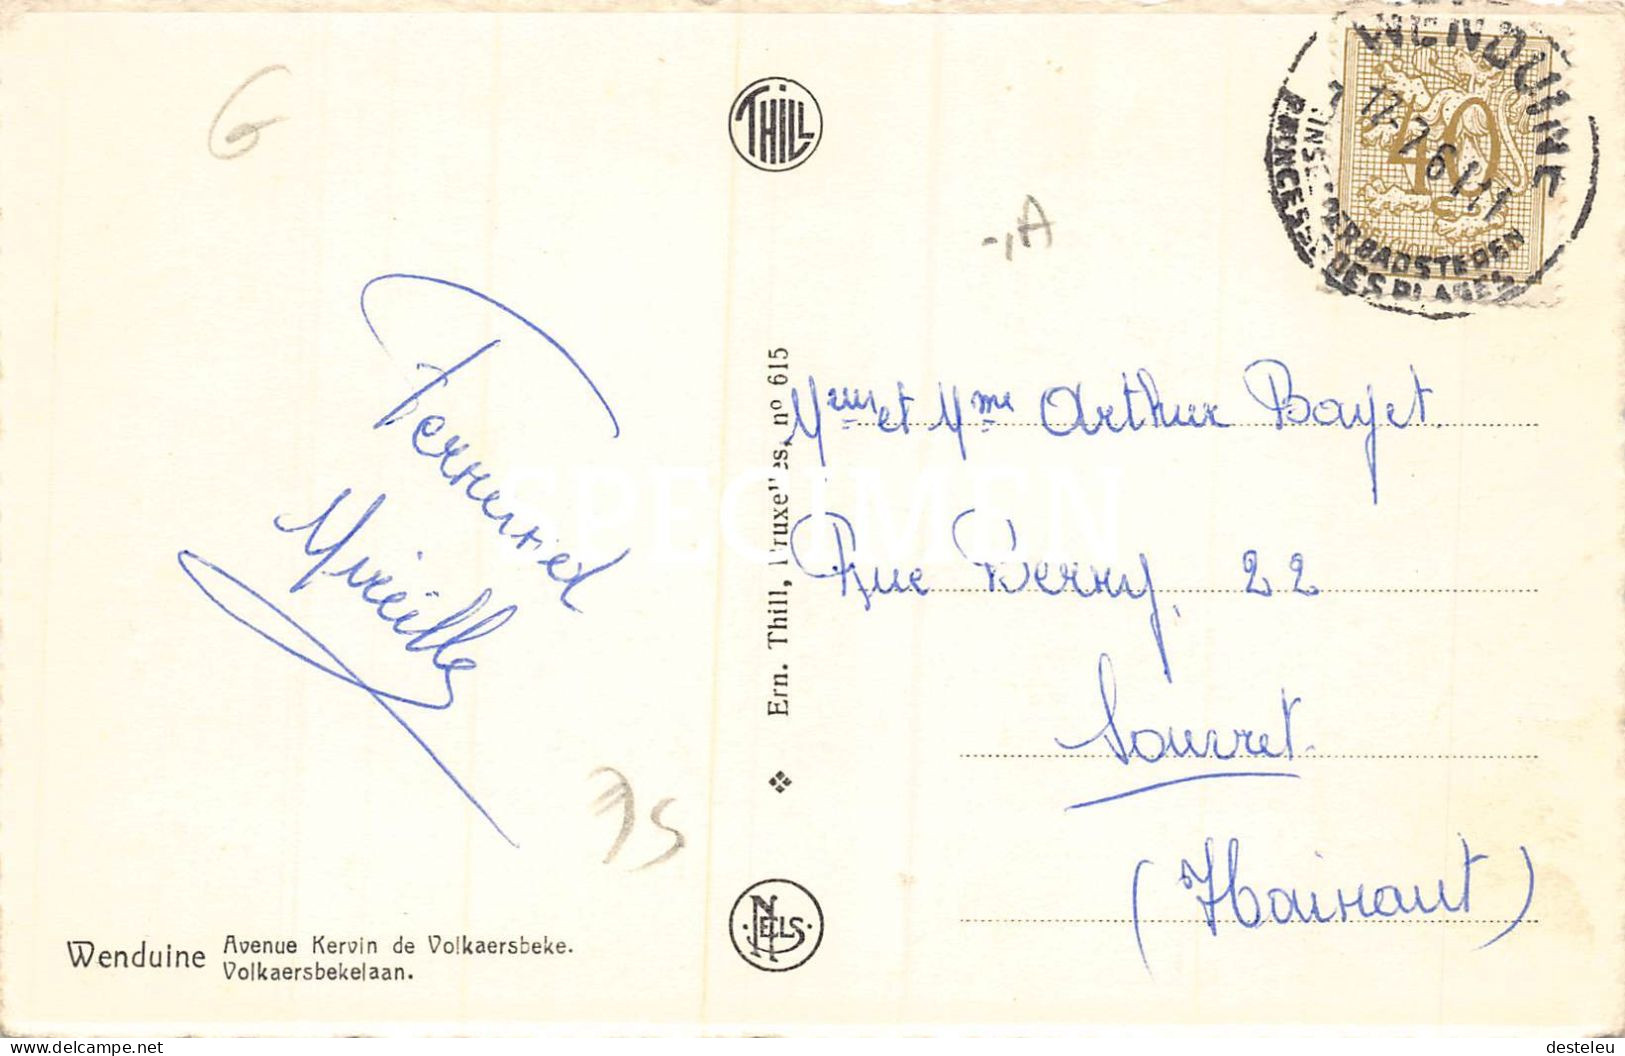 G
THILL
WENDUINE
17-7 61
40
PRINSES DER BADSTEDEN
PRINCESSE DES PLAGES
-,A
Mr et Mme Arthur Bayet.
Rue Ferry, 22
Souvret.
(Hainaut)
Mireille
75
Ern. Thill, Bruxelles, nº 615
NELS
SPECIMEN
Wenduine Avenue Kervin de Volkaersbeke.
Volkaersbekelaan.
www.delcampe.net
desteleu